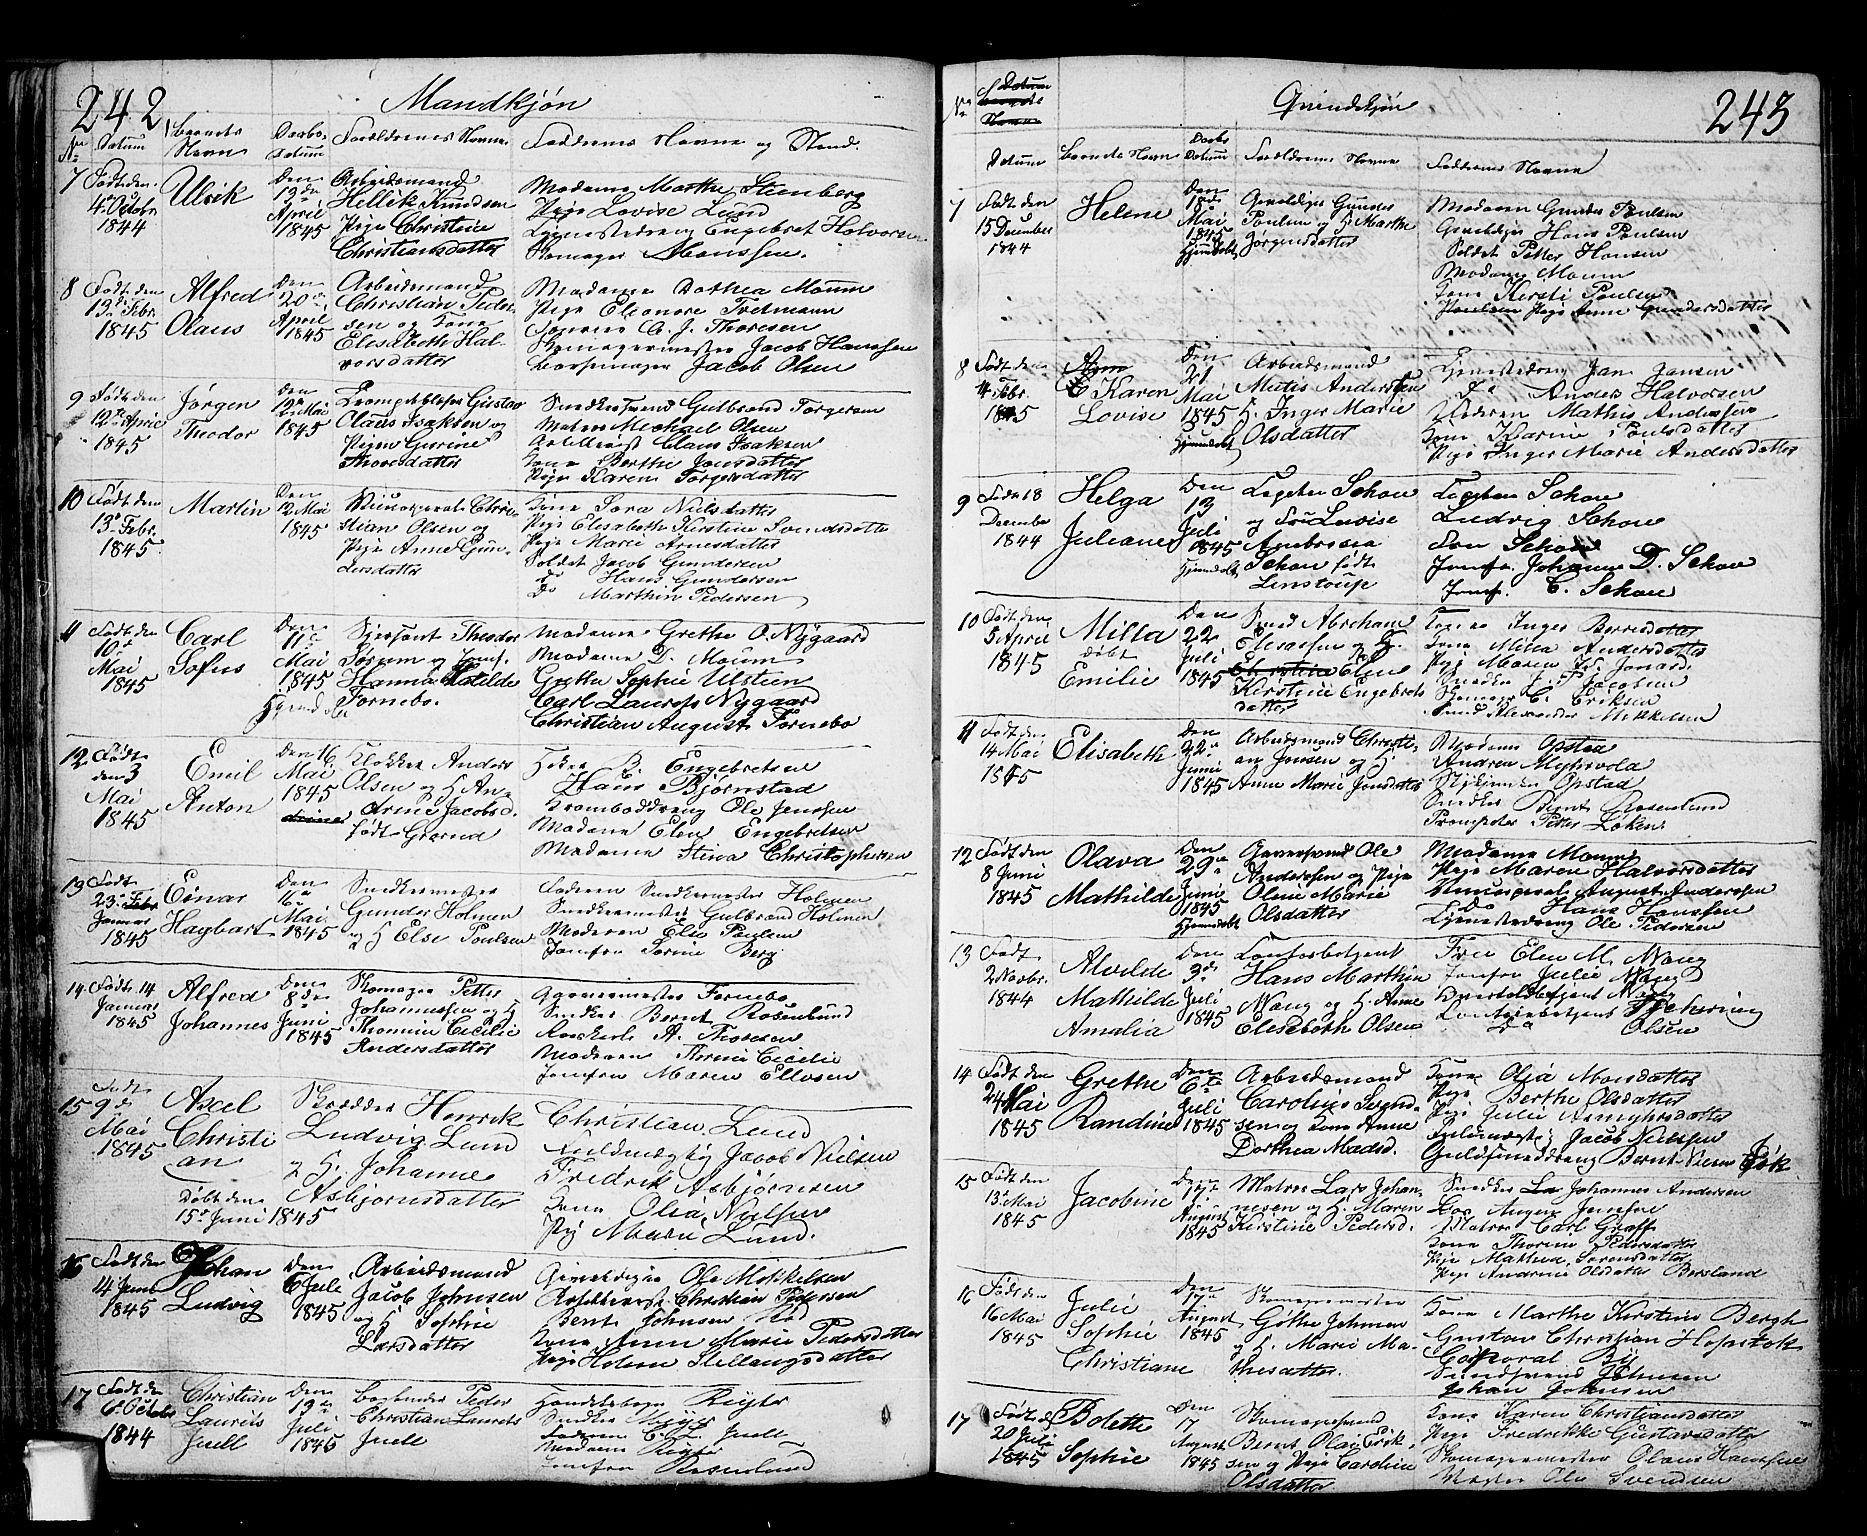 242
Mandkjøn
No
Datum
Barnets Navn
Daabs-Datum
Forældrenes Navne
Faddrenes Navne og Stand.
7
Født den
4de Octobr
1844
Ulrik
Den
19de
April
1845
Arbeidsmand
Hellik Knudsen
Pige Christine
Christiansdatter
Madame Marthe Steenberg
Pige Lovise Lund
Tjenestedreng Engebret Halvorsen
Skomager Monssen.
8
Født den
13de Febr.
1845
Alfred
Olaus
Den
20de
April
1845
Arbeidsmand
Christian Peder-
sen og Kone
Elisabeth Hal-
vorsdatter
Madame Dorthea Moum
Pige Eleonore Tretmann
A. J. Thoresen
Skomagermester Jacob Hanssen
Jacob Olsen
9
Født den
12te April
1845
Jørgen
Theodor
Den
12te Mai
1845
Gustav
Claus Isaksen og
Pigen Gurine
Thoresdatter
Snedkersvend Gulbrand Torgersen
Matros Michael Olsen
Artillerist Claus Isaksen
Kone Berthe Jonsdatter
Pige Karen Torgersdatter
10
Født den
13de Febr.
1845
Martin
Den
12 Mai
1845
Chri-
stian Olsen og
Pige Anne Gun-
dersdatter
Kone Sara Nielsdatter
Pige Elisabeth Kirstine
Pige Marie Arnesdatter
Soldat Jacob Gundersen
Do Hans Gundersen
Do Marthin Pedersen
11
Født den
10de
Mai
1845
Carl
Sofus
Den
11te
Mai
1845
Sersjant Theodor
og Jomf.
Hanna Matilde
Tornebo.
Madame Grethe O. Nygaard
Madame D. Moum
Grethe Sophie Ulsteen
Carl Laurets Nygaard
Christian August Tornebo
12
Født
den 3
Mai
1845
Emil
Anton
Den 16.
Mai
1845
Klokker Anders
Olsen og H An-
Arine Jacobsd.
født Grorud
B. Engebretsen
Hans Bjørnstad
Ole Jenssen
Madame Elen Engebretsen
Madame Stina Christophersen
13
Født
23de
Januar
1845
Einar
Hagbart
Den
16de
Mai
1845
Snedkermester
Gunder Holmen
og H Else Poulsen
Faderen Snedkermester Holmen
Snedkermester Gulbrand Holmen
Moderen Else Poulsen
Jomfru Sorine Berg
14
Født 14
Januar
1845
Alfred
Johannes
Den
8de
Juni
1845
Skomager Petter
Johannessen og H
Thomine Cecilie
Andersdatter
Garvermester Tornebo
Snedker Bernt Rosenlund
A. Thoresen
Moderen Thomine Cecilie
Jomfru Maren Ellevsen
15
Født
9de
Mai
1845
Axel
Christi
an
Døbt den
15de Juni 1845
Skrædder Henrik
Ludvig Lund
og H. Johanne
Asbjørnsdatter
Christian Lund
Fuldmægtig Jacob Nielsen
Fredrik Asbjørnsen
Kone Olea Nielsen
Pige Marie Lund.
16
Født den
14 Juni
1845
Johan
Ludvig
Den
6 Juli
1845
Arbeidsmand
Jacob Johnsen
og H Sophie
Larsdatter
Ole Mikkelsen
Christian Pedersen
Bernt Johnsen
Kone Anne Marie Pedersdatter
Pige Helene Stellaugsdatter
17
Født den
6te Octobr
1844
Christian
Laurits
Juell
Den
19de
Juli
1845
Peder
Christian Laurets
Juell
Rigter
Snedker
Faderen C. L. Juell
Madame Rigter
Jomfru Rosenlund
243
Qvindekjøn
No
Datum
Barnets Navn
Daabs Datum
Forældrenes Navne
Faddrenes Navne
7
Født den
15 December
1844
Helene
Den
18de
Mai
1845
Hjemdøbt
Gunder
Poulsen og H Marthe
Jørgensdatter
Moderen Gunder Poulsen
Hans Poulsen
Soldat Petter Hansen
Madame Moum
Kone Kirsti Poulsen
Pige Anne Gundersdatter
8
Født den
4 Febr.
1845
Karen
Lovise
Den
21
Mai
1845
Hjemdøbt
Arbeidsmand
Matis Andersen
H. Inger Marie
Olsdatter
Tjenestedreng Jan Jansen
Do Anders Halvorsen
Faderen Mathis Andersen
Kone Karine Poulsdatter
Pige Inger Marie Andersdatter
9
Født 18
December
1844
Helga
Juliane
Den
13
Juli
1845
Hjemdøbt
Capten Schou
og Fru Lovise
Ambrosia
Schou født
Linstoup
Capten Schou
Ludvig Schou
Fru Schou
Jomfru Johanne D. Schou
Jomf. C. Schou
10
Født den
5 April
1845
Milla
døbt
Emilie
Den
22
Juli
1845
Smed Abraham
Eliesen og H.
Elen
Kirstine Engebrets
datter
Kone Inger Berredatter
Kone Milia Andersdatter
Pige Maren
J. P. Jacobsen
Skomag. C. Eriksen
Smed Alexander Mikkelsen
11
Født den
14 Mai
1845
Elisabeth
Den
22de
Juni
1845
Arbeidsmand Christi-
an Jensen og H.
Anne Marie Jonsdatter
Madame Opstad
Andrea Myhrvold
Opstad
Snedker Bernt Rosenlund
Trompeter Petter Løken
12
Født den
8 Juni
1845
Olava
Mathilde
Den
29de
Juni
1845
Hjemdøbt
Garversvend Ole
Andersen og Pige
Oline Marie
Olsdatter
Madame Moum
Pige Maren Halvorsdatter
August Andersen
Do Hans Hanssen
Tjenestedreng Ole Pedersen
13
Født
2 Novbr.
1844
Alvilde
Mathilde
Amalia
Den
3de
Juli
1845
Contorbetjent
Hans Marthin
Wang og H. Anne
Elisebeth Olsen
Fru Elen M. Wang
Jomfru Julie Wang
Wang
Contoirbetjent Ihchering
Do Olsen
14
Født den
24 Mai
1845
Grethe
Randine
Den
6te
Juli
1845
Arbeidsmand
Carolius
sen og Kone Anne
Dorthea Madsd.
Kone Olia Monsdatter
Pige Berthe Olsdatter
Pige Julie
Fuldmægtig Jacob Nielsen
Bernt
15
Født den
13de Mai
1845
Jacobine
Den
17de
August
1845
Matros Lars Johan-
nesen og H. Maren
Kirstine Pedersd.
Snedker Johannes Andersen
Matros Carl Graff
Kone Thorine Pedersdatter
Pige Mathea Sørensdatter
Pige Andrine Olsdatter Bersland
16
Født den
16 Mai
1845
Julie
Sophie
Christiane
Den
17
August
1845
Skomagermester
Gøthe Johnsen
og H. Marie Ma-
thesdatter
Kone Marthe Kirstine Bergh
Gustav Christian Hofsstok
Corporal By
Svend Johnsen
Johan Johnsen
17
Født d
20 Juli
1845
Bolette
Sophie
Den
17
August
1845
Skomagersvend
Bernt Olai Erik-
sen og Pige Caroline
Olsdatter
Kone Karen Christiansdatter
Pige Fredrikke Gustavsdatter
Skomagermester Olaus Hanssen
Ole Svendsen